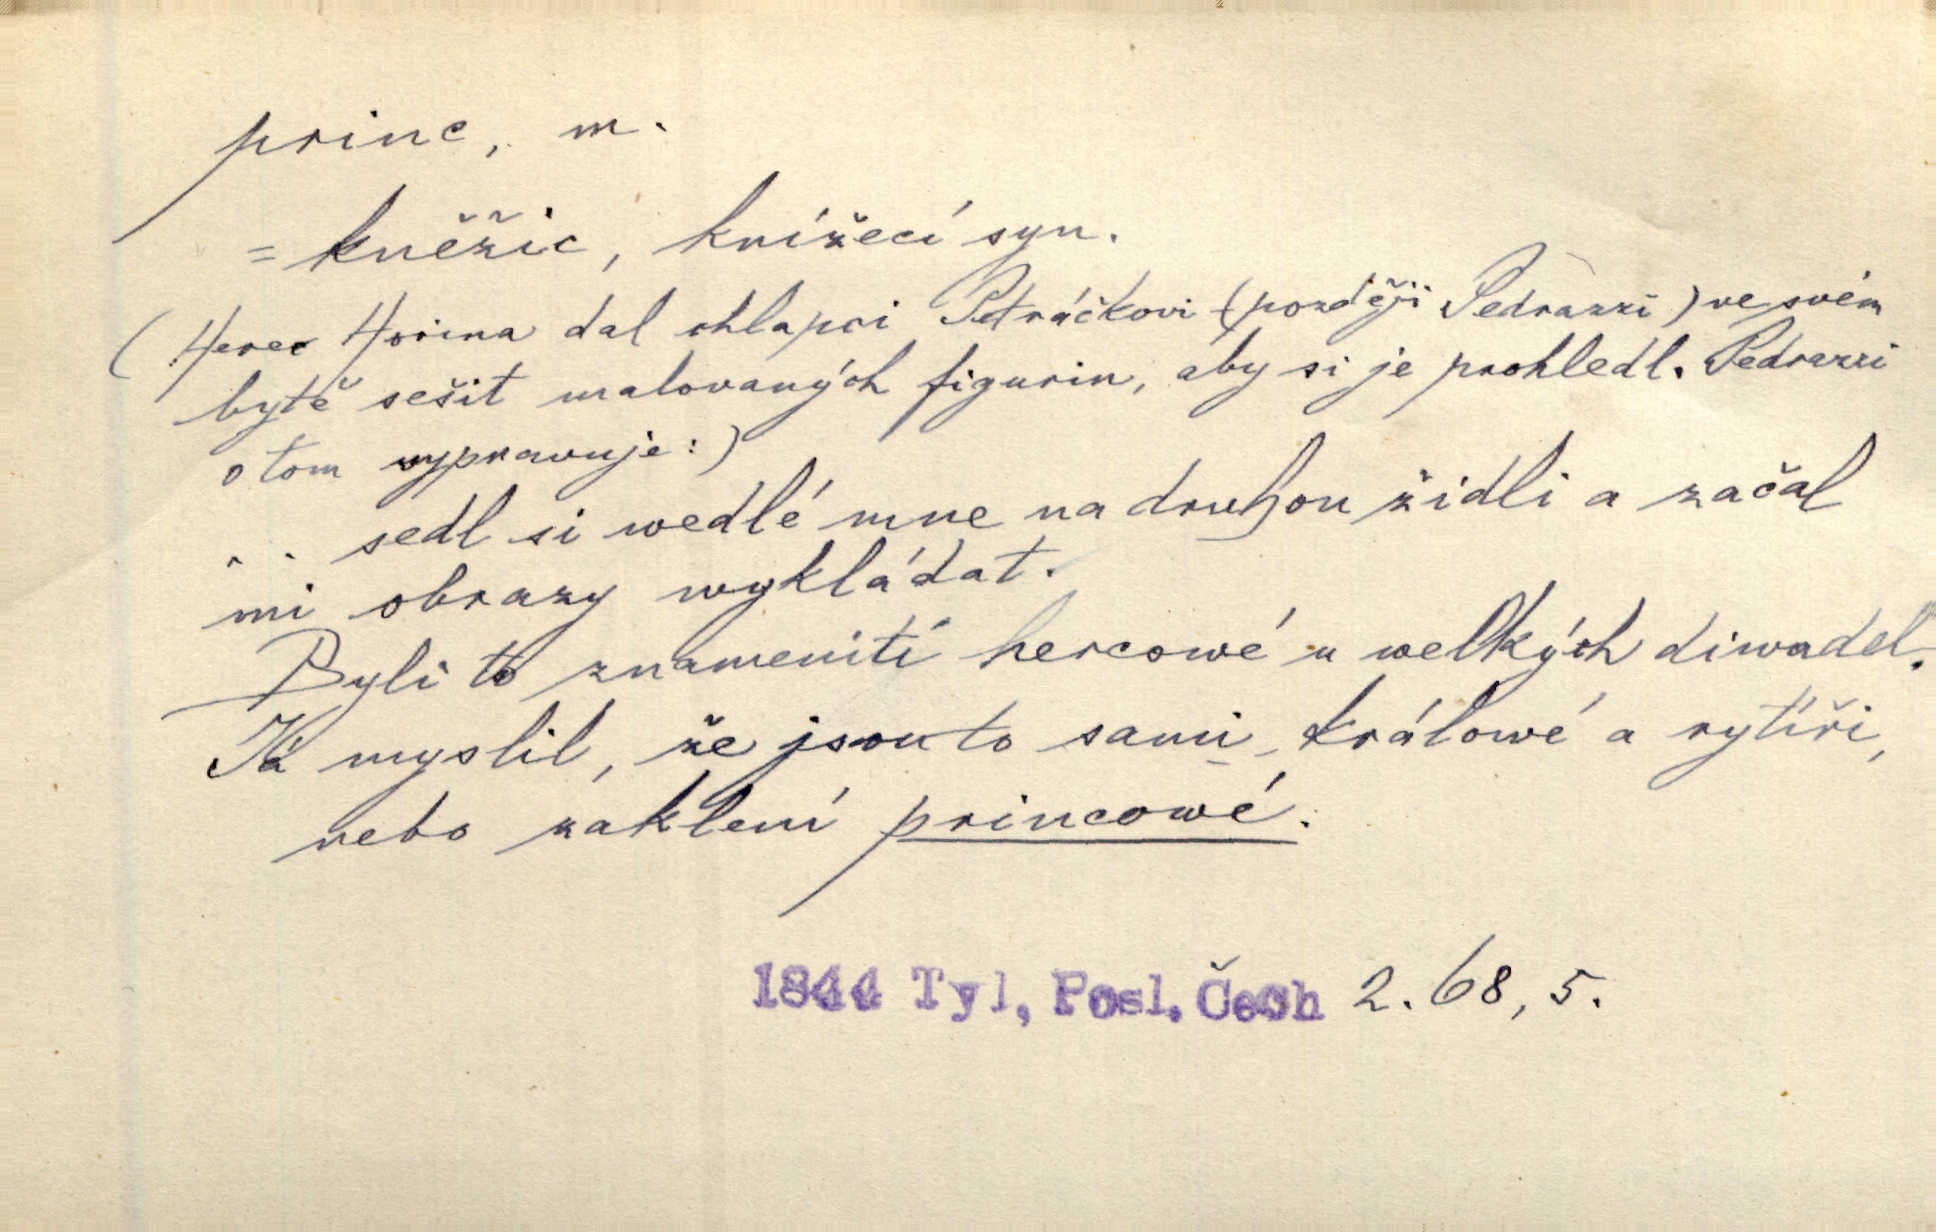 princ, m.
= kněžic, knížecí syn.
(Herec Hořina dal chlapci Petráčkovi (později Pedrazzi) ve svém
bytě sešit malovaných figurin, aby si je prohledl. Pedrazzi
o tom vypravuje:)
sedl si wedlé mne na druhou židli a začal
mi obrazy wykládat.
Byli to znamenití hercowé u welkých diwadel.
Já myslil, že jsou to sami králowé a rytíři,
nebo zakletí princowé.
1844 Tyl, Posl. Čech 2. 68, 5.